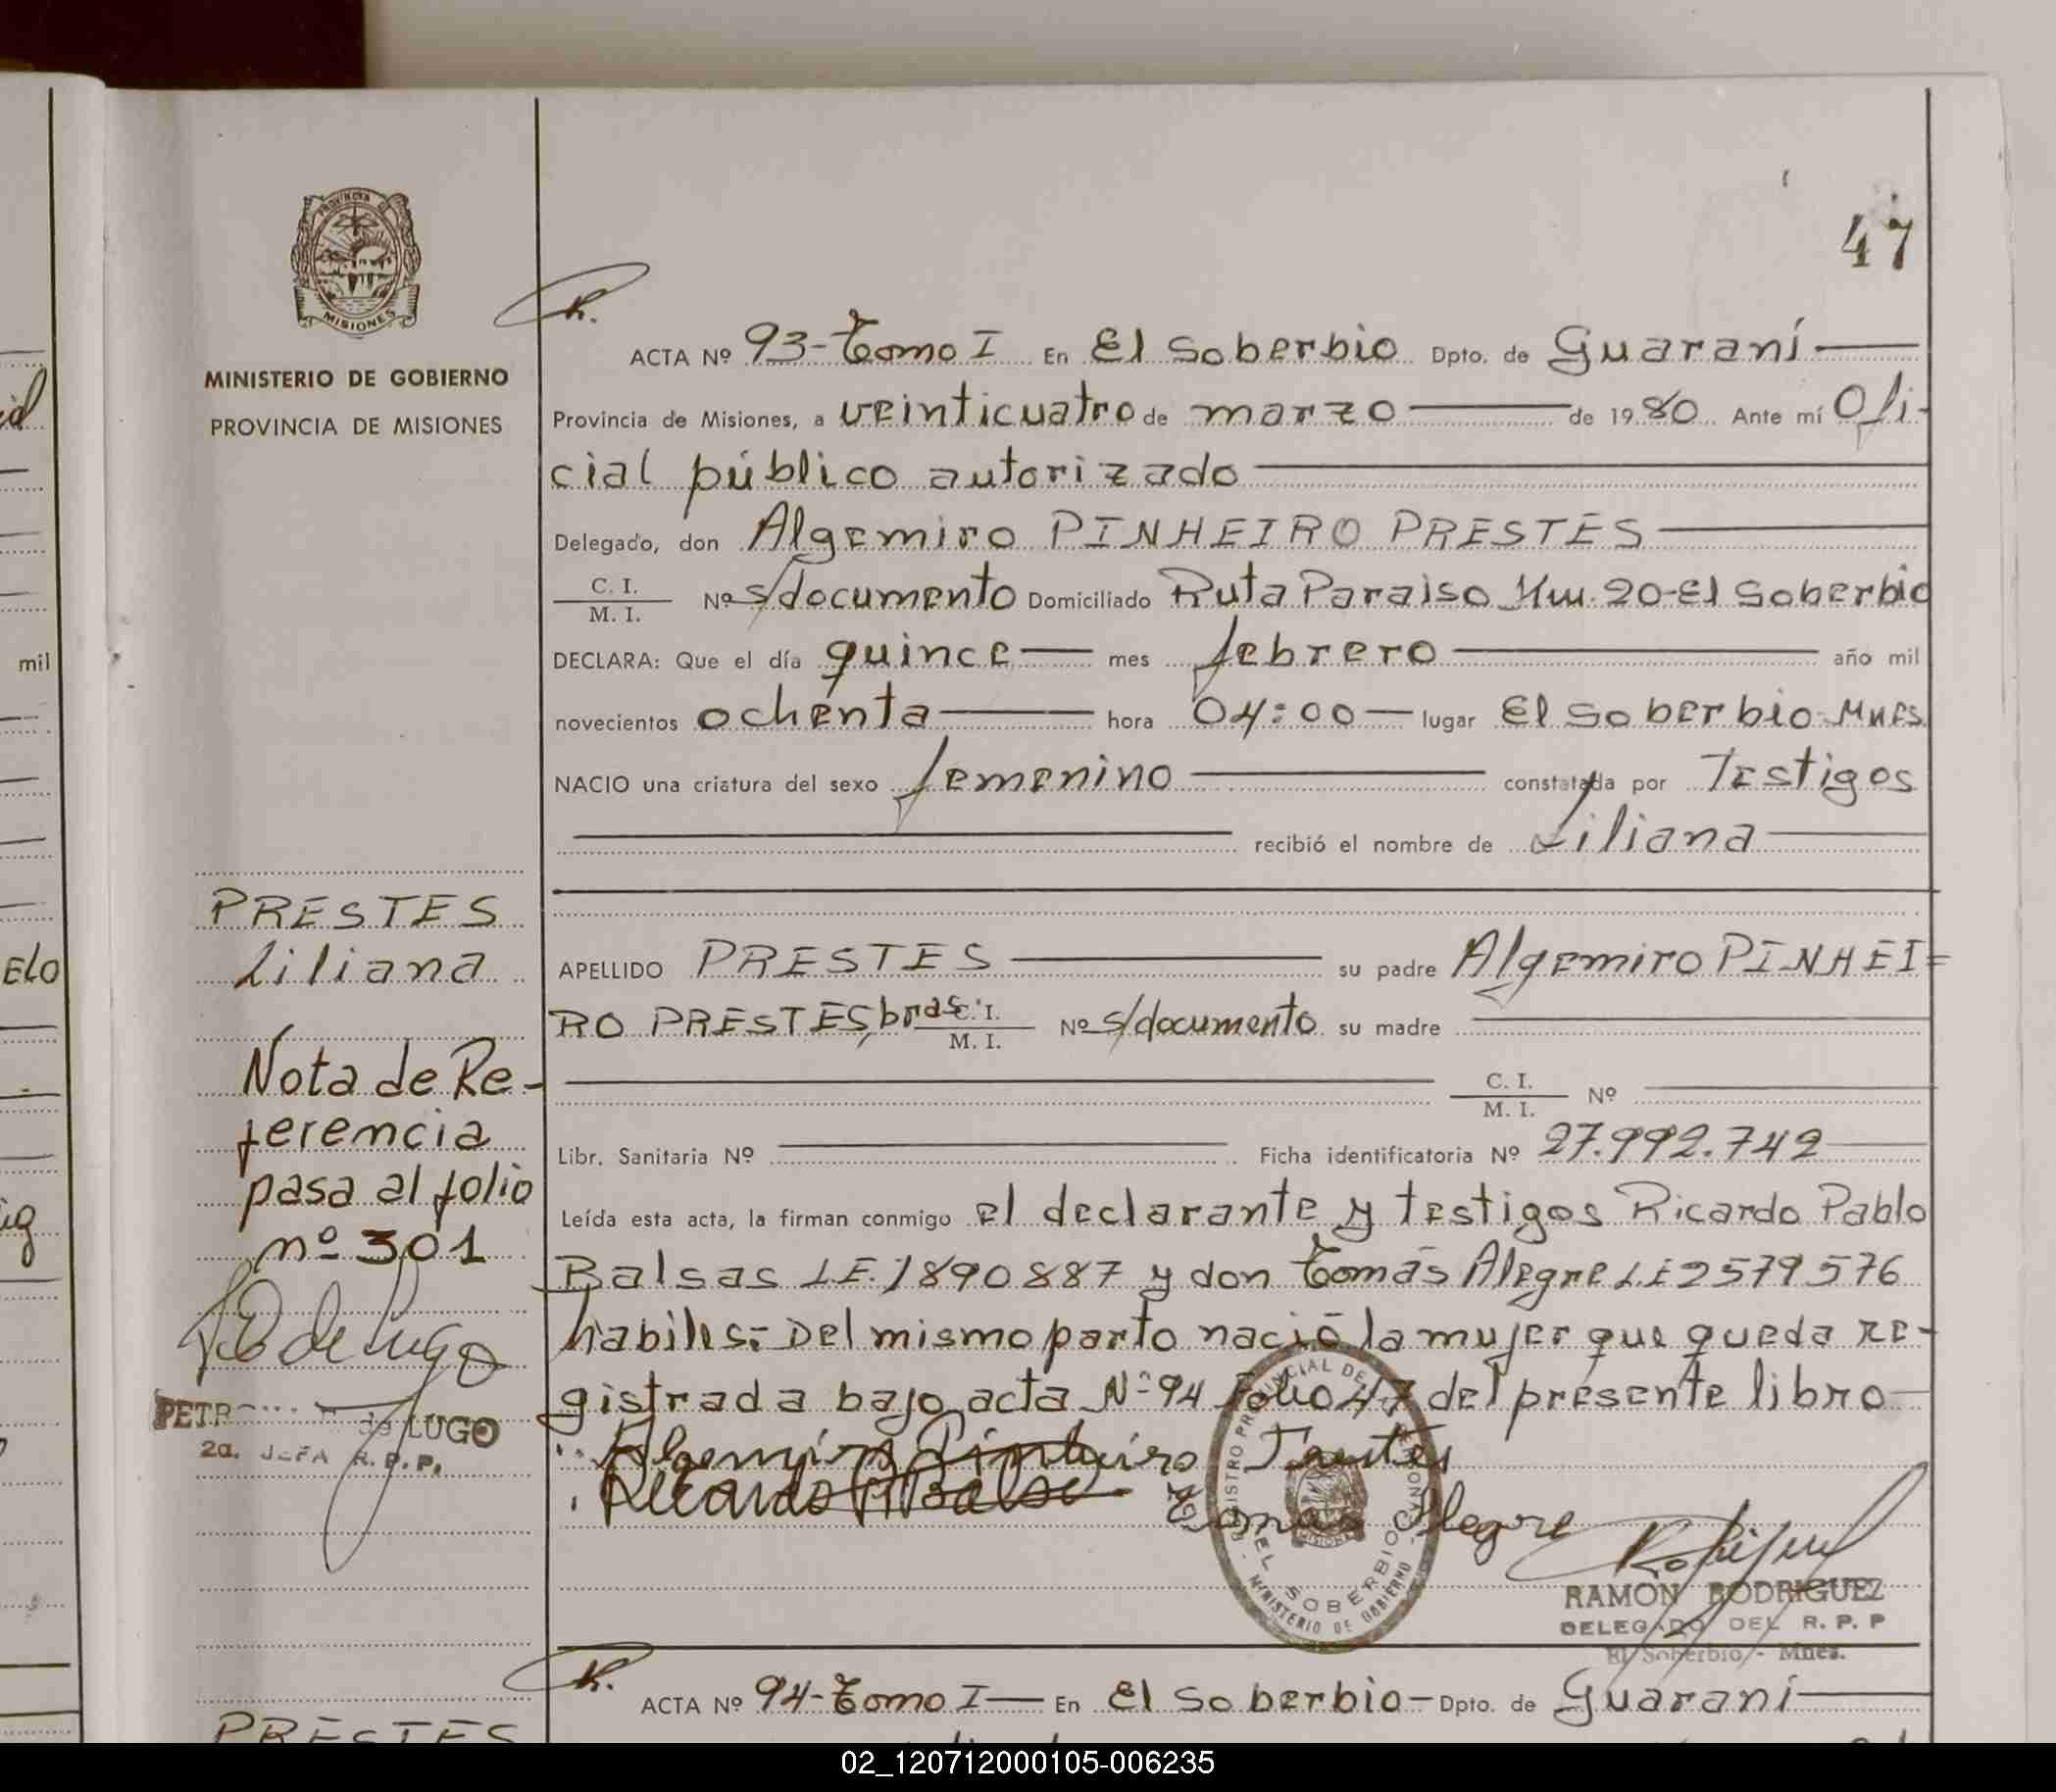 47
PROVINCIA DE
MISIONES
MINISTERIO DE GOBIERNO
PROVINCIA DE MISIONES
ACTA Nº 93-Tomo I En El Soberbio Dpto. de Guaraní
Provincia de Misiones, a veinticuatro de marzo de 1980 Ante mí Ofi-
cial público autorizado
Delegado, don Algemiro PINHEIRO PRESTES
C. I.
M. I. Nº s/documento Domiciliado Ruta Paraiso Km. 20-El Soberbio
DECLARA: Que el día quince mes febrero año mil
novecientos ochenta hora 04:00 lugar El Soberbio-Mnes.
NACIO una criatura del sexo femenino constatada por Testigos
recibió el nombre de Liliana
APELLIDO PRESTES su padre Algemiro PINHEI=
RO PRESTES, bras. C. I.
M. I. Nº s/documento su madre
C. I.
M. I. Nº
Libr. Sanitaria Nº Ficha identificatoria Nº 27.992.742
Leída esta acta, la firman conmigo el declarante y testigos Ricardo Pablo
Balsas LE.1890887 y don Tomás Alegre L.E 2579576
habiles:- Del mismo parto nació la mujer que queda re-
gistrada bajo acta Nº 94 Folio 47 del présente libro
Algemiro Pinheiro Prestes
Ricardo P Balsa
Tomas Alegre
REGISTRO PROVINCIAL DE LAS PERSONAS
EL SOBERBIO
MINISTERIO DE GOBIERNO
RAMON RODRIGUEZ
DELEGADO DEL R. P. P
El Soberbio - Mnes.
PRESTES
Liliana
Nota de Re-
ferencia
pasa al folio
nº 301
de Lugo
PETR de LUGO
2a. JEFA R. P. P.
ACTA Nº 94-Tomo I En El Soberbio- Dpto. de Guaraní
PRESTES
mil
02_120712000105-006235